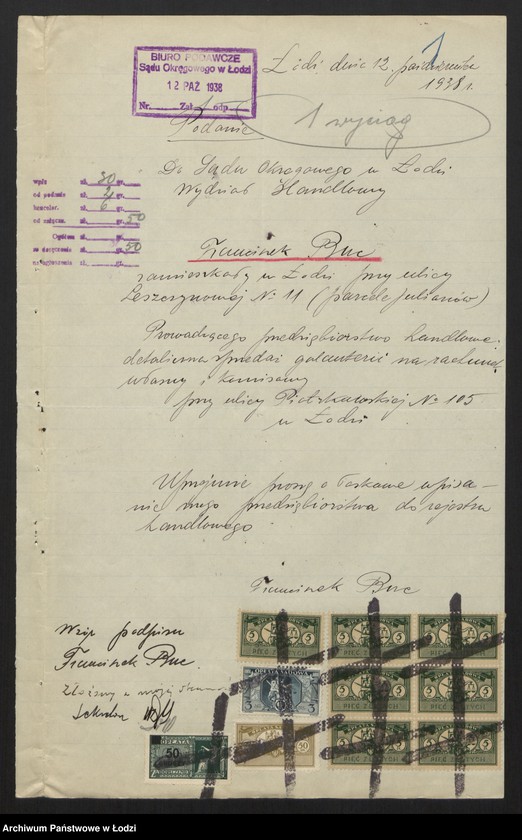 1
Łódź dnia 12 października
1938 r.
BIURO PODAWCZE
Sądu Okręgowego w Łodzi
12 PAŹ 1938
Nr. Zał. odp.
Podanie
1 wyciąg
Do Sądu Okręgowego w Łodzi
Wydział Handlowy
wpis zł. 30 gr.
od podania zł. 2 gr.
kancelar. zł. 6 gr.
od załącz. zł. gr. 50
Ogółem zł. gr.
za doręczenie zł. gr. 50
za ogłoszenie zł. gr.
Franciszek Buc
zamieszkały w Łodzi przy ulicy
Leszczynowej № 11 (parcele Julianów)
Prowadzącego przedsiębiorstwo handlowe.
detaliczna sprzedaż galanterii na rachunek
własny i komisowy
przy ulicy Piotrkowskiej № 105
w Łodzi
Uprzejmie proszę o łaskawe wpisa-
nie mego przedsiębiorstwa do rejestru
handlowego
Franciszek Buc
Wzór podpisu
Franciszek Buc.
Złożony w mojej
5 5 5
PIĘĆ ZŁOTYCH
OPŁATA SĄDOWA
3 3
5 5 5
50 50
OPŁATA
50
5 5 5
PIĘĆ ZŁOTYCH
Archiwum Państwowe w Łodzi